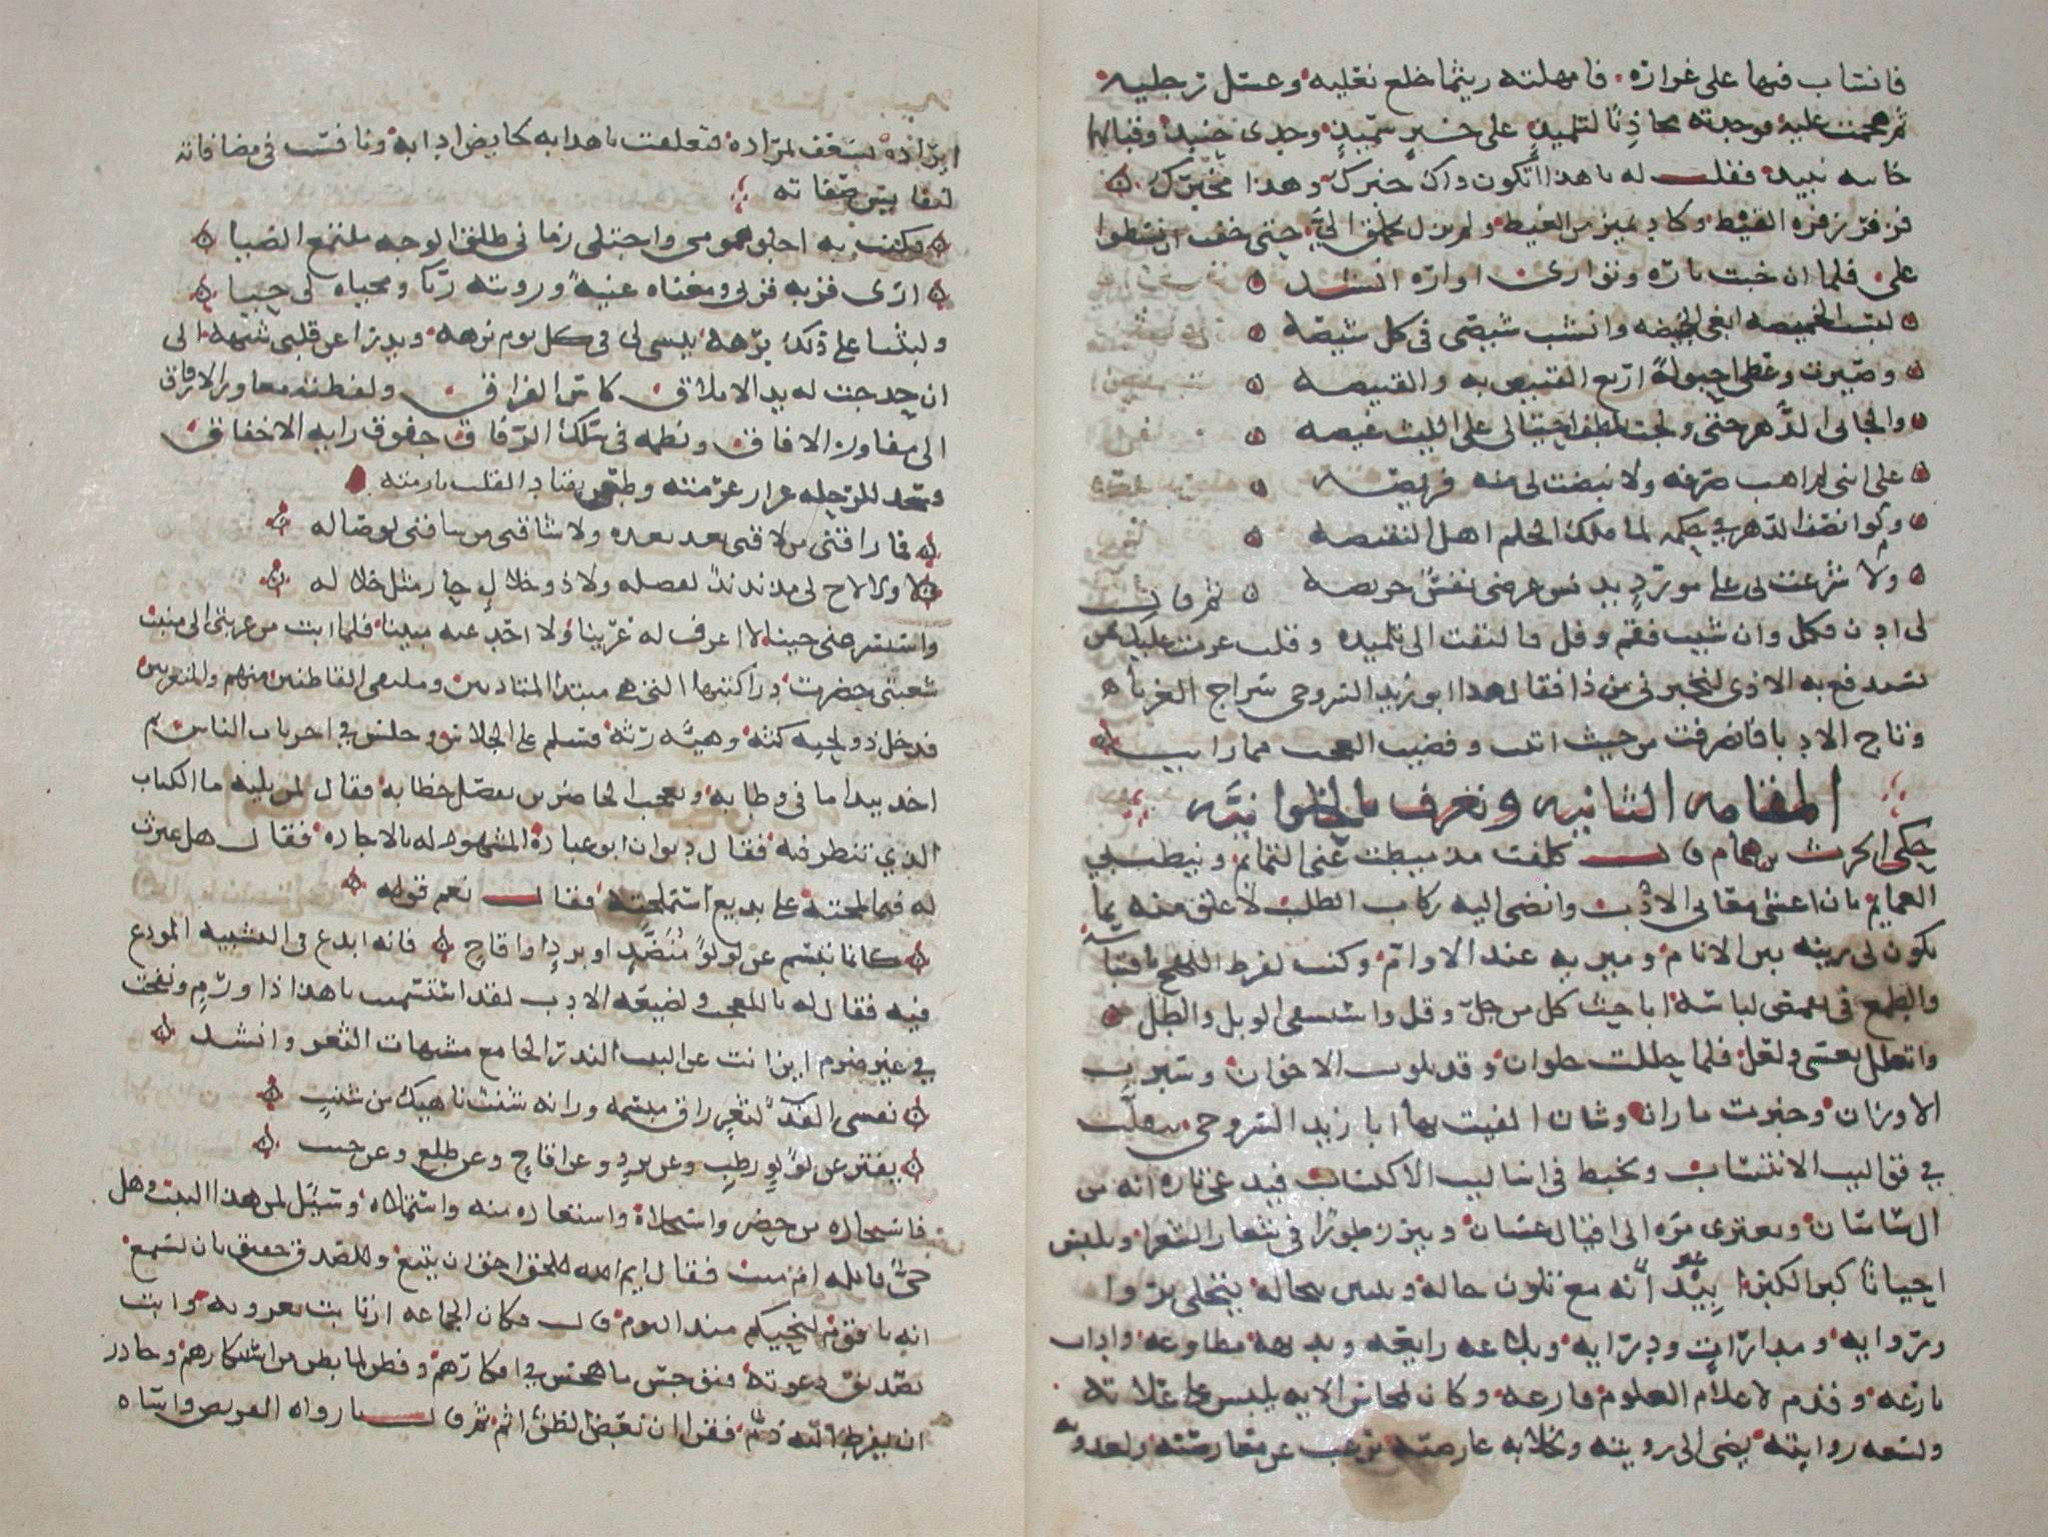 فانساب فيها على غراره فامهلته ريثما خلع نعليه وغسل رجليه
ثم هجمت عليه فوجدته محاذيا لتلميذ على خبز سميذ وجدي حنيذ وقبالتهما
خابيه نبيذ فقلت له يا هذا اتكون ذاك خبرك وهذا مخبرك
فزفر زفرة القيظ وكاد يميز من الغيظ ولم يزل يحملق الي حتى خفت ان يسطوا
علي فلما ان خبت ناره وتوارى اواره انشد
لبست الخميصه ابغي الخبيصه وانشب شصي في كل شيصه
وصيرت وعظي احبولة اريغ القنيص به والقنيصه
والجاني الدهر حتى ولجت بلطف احتيالي على الليث عيصه
على انني لم اهب صرفه ولا نبضت لي منه فريصه
ولو انصف الدهر في حكمه لما ملك الحكم اهل النقيصه
ولا شرعت لي على مورد يدنس عرضي نفس حريصه ثم قال
لي ادن فكل وان شيت فقم وقل فالتفت الى تلميذه وقلت عزمت عليك بمن
تستدفع به الاذى لتخبرني من ذا فقال هذا ابو زيد السروجي سراج الغرباء
وتاج الادبا فانصرفت من حيث اتيت وقضيت العجب مما رايت
المقامه الثانيه وتعرف بالحلوانيه
حكى الحرث بن همام قال كلفت مذ ميطت عني التمايم ونيطت بي
العمايم بان اغشى مغاني الادب وانضي اليه ركاب الطلب لاعلق منه بما
يكون لي زينه بين الانام ومزنه عند الاوام وكنت لفرط اللهج باقتباسه
والطمع في تقمص لباسه اباحث كل من جل وقل واستسقي الوبل والطل
واتعلل بعسى ولعل فلما حللت حلوان وقد بلوت الاخوان وسبرت
الاوزان وخبرت ما زان وشان الفيت بها ابا زيد السروجي يتقلب
في قواليب الانتساب ويخبط في اساليب الاكتساب فيدعي تاره انه من
ال ساسان ويعتزي مره الى اقيال غسان ويبرز طورا في شعار الشعرا ويلبس
احيانا كبر الكبرا بيد انه مع تلون حاله وتبين محاله يتحلى برواء
ورواية ومداراة ودراية وبلاغه رايعه وبديهه مطاوعه واداب
بارعه وقدم لاعلام العلوم فارعه وكان لمحاسن الايه يلبس على علاته
ولسعه روايته يصبى الى رويته وبخلابه عارضته يرغب عن معارضته ولعذوبه
ايراده يسعف لمراده فتعلقت باهدابه لخايص ادابه ونافست في مصافاته
لنفايس صفاته
فكنت به اجلو همومي واجتلي زماني طلق الوجه ملتمع الضيا
ارى قربه قربى ومغناه غنيه ورويته ريا ومحياه لي حيا
ولبثنا على ذلك برهه ينسي لي في كل يوم نزهه ويدرا عن قلبي شبهه الى
ان جدحت له يد الاملاق كاس الفراق ولفظته معاوز الارفاق
الى مفاوز الافاق ونظمه في سلك الرفاق خفوق رايه الاخفاق
وشحذ للرحله غرار عزمته وظعن يقتاد القلب بازمته
فما راقني من لاقني بعد بعده ولا شاقني من ساقني لوصاله
ولا لاح لي مذ ند ند لفضله ولا ذو خلال حاز مثل خلاله
واستسر عني حينا لا اعرف له عرينا ولا اجد عنه مبينا فلما ابت من غربتي الى منبت
شعبتي حضرت دار كتبها التي هي منتدا المتادبين وملتقى القاطنين منهم والمتغربين
فدخل ذو لحيه كثه وهيئه رثه فسلم على الجلاس وجلس في اخريات الناس ثم
اخذ يبدا ما في وطابه ويعجب الحاضرين بفصل خطابه فقال لمن يليه ما الكتاب
الذي تنظر فيه فقال ديوان ابو عباده المشهود له بالاجاده فقال هل عثرت
له فيما لمحته على بديع استملحته فقال نعم قوله
كانما تبسم عن لولو منضد او برد او اقاح فانه ابدع في التشبيه المودع
فيه فقال له يا للعجب ولضيعه الادب لقد استسمنت يا هذا ذا ورم ونفخت
في غير ضرم اين انت عن البيت الندر الجامع مشبهات الثغر وانشد
نفسي الفداء لثغر راق مبسمه وزانه شنب ناهيك من شنب
يفتر عن لولو رطب وعن برد وعن اقاح وعن طلع وعن حبب
فاستجاده من حضر واستحلاه واستعاده منه واستملاه وسئل لمن هذا البيت وهل
حي قايله ام ميت فقال ايم الله للحق احق ان يتبع وللصدق حقيق بان يستمع
انه يا قوم لنجيكم مذ اليوم قال فكان الجماعه ارتابت بعزوته وابت
تصديق دعوته فتوجس ما هجس في افكارهم وفطن لما بطن من استنكارهم وحاذر
ان يفرط اليه ذم فقرا ان بعض الظن اثم ثم قال يا رواه القريض واساه